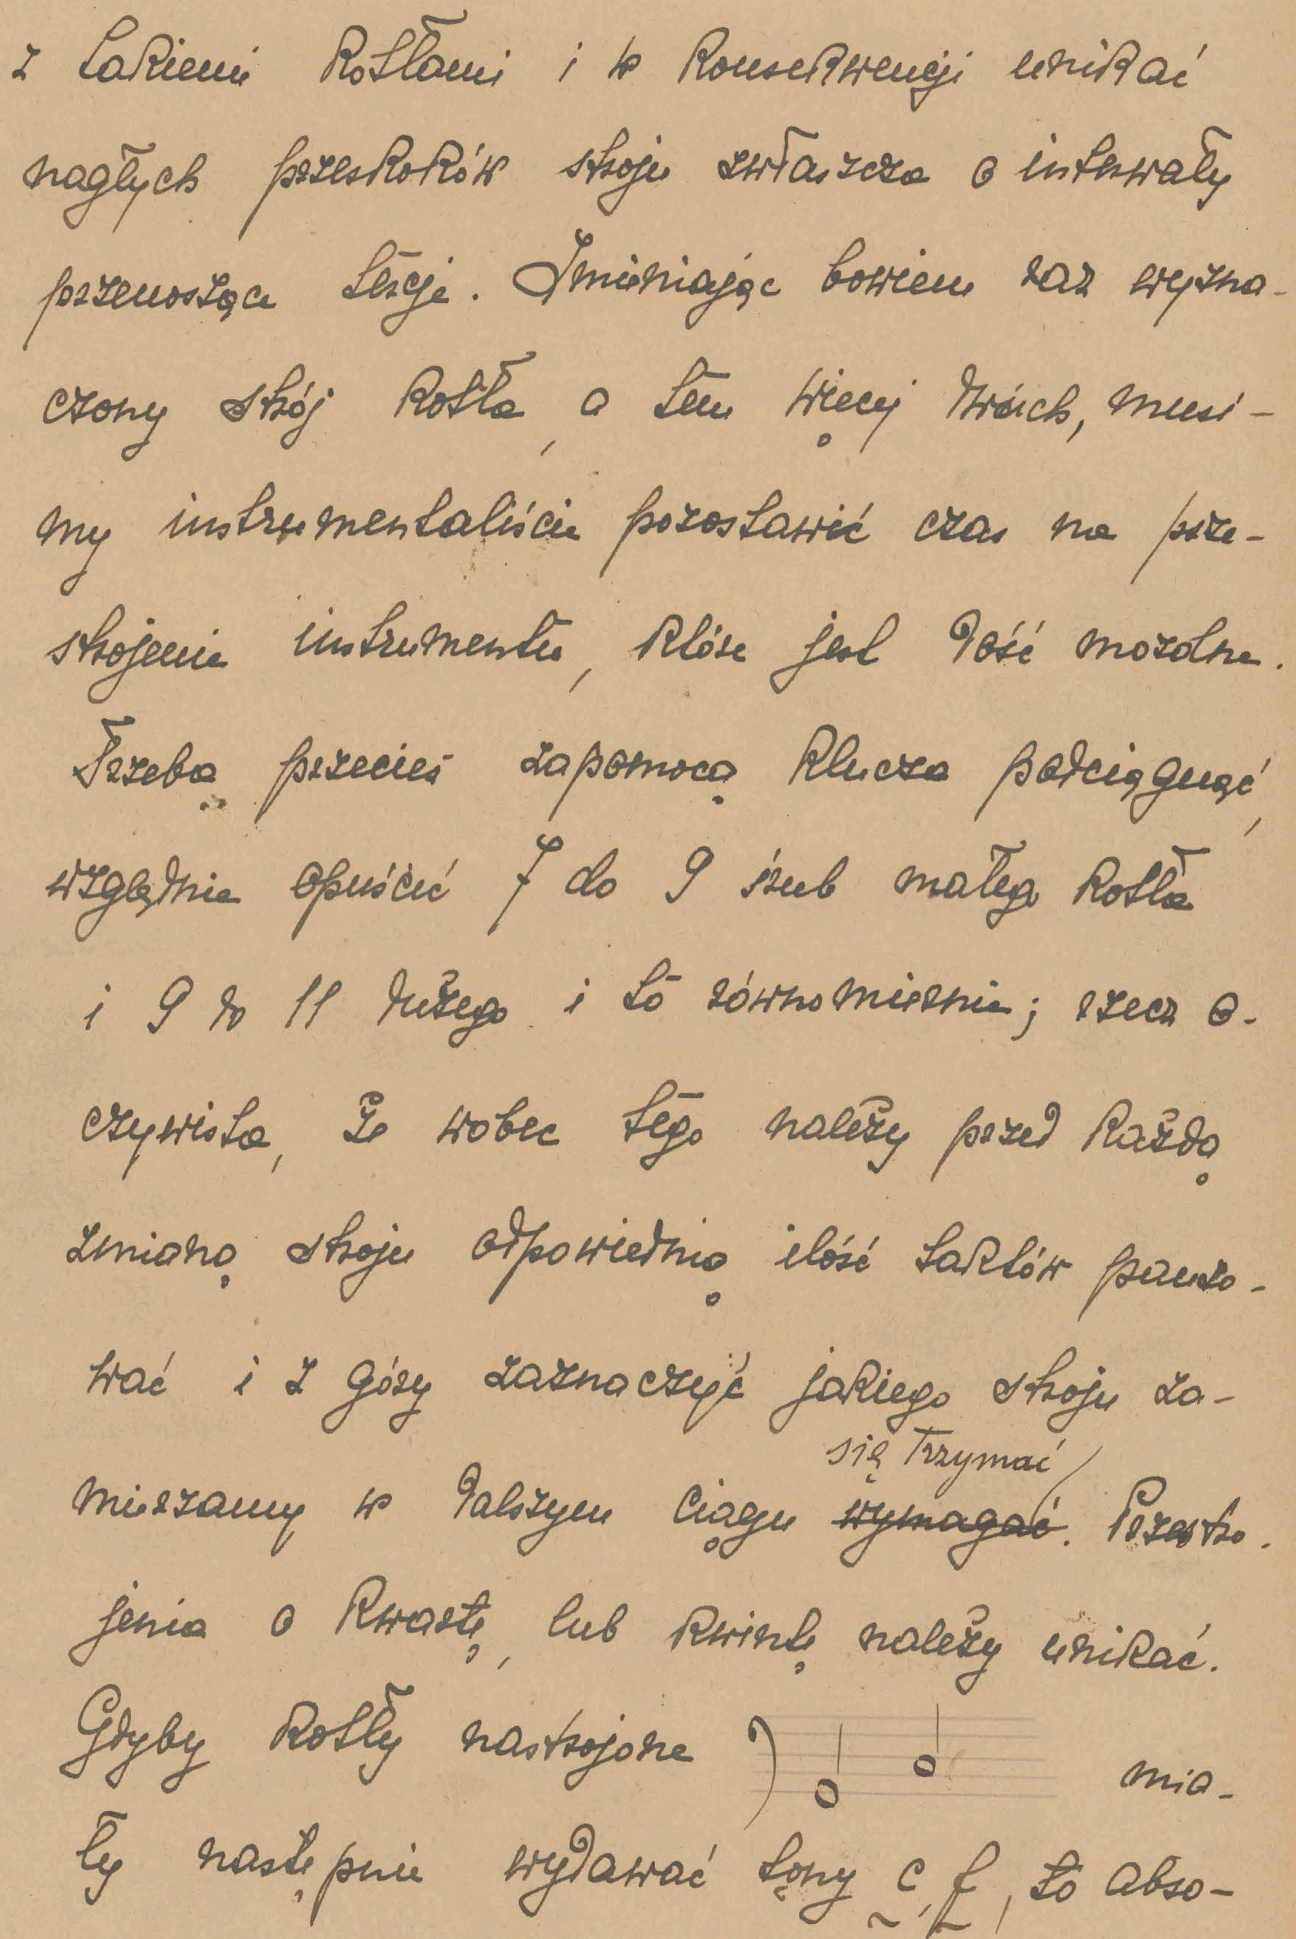 z takiemi kotłami i w konsekwencji unikać
nagłych przeskoków stroju zwłaszcza o interwały
przenoszące tercję. Zmieniając bowiem raz wyzna-
czony strój kotła, a tem więcej dwóch, musi-
my instrumentaliście pozostawić czas na prze-
strojenie instrumentu, które jest dość mozolne.
Trzeba przecież zapomocą klucza podciągnąć,
względnie opuścić 7 do 9 śrub małego kotła
i 9 do 11 dużego i to równomiernie; rzecz o-
czywista, że wobec tego należy przed każdą
zmianą stroju odpowiednią ilość taktów pauzo-
wać i z góry zaznaczyć jakiego stroju za-
się trzymać
mierzamy w dalszym ciągu wymagać. Przestro-
jenia o kwartę, lub kwintę należy unikać.
Gdyby kotły nastrojone mia-
ły następnie wydawać tony c, f, to abso-